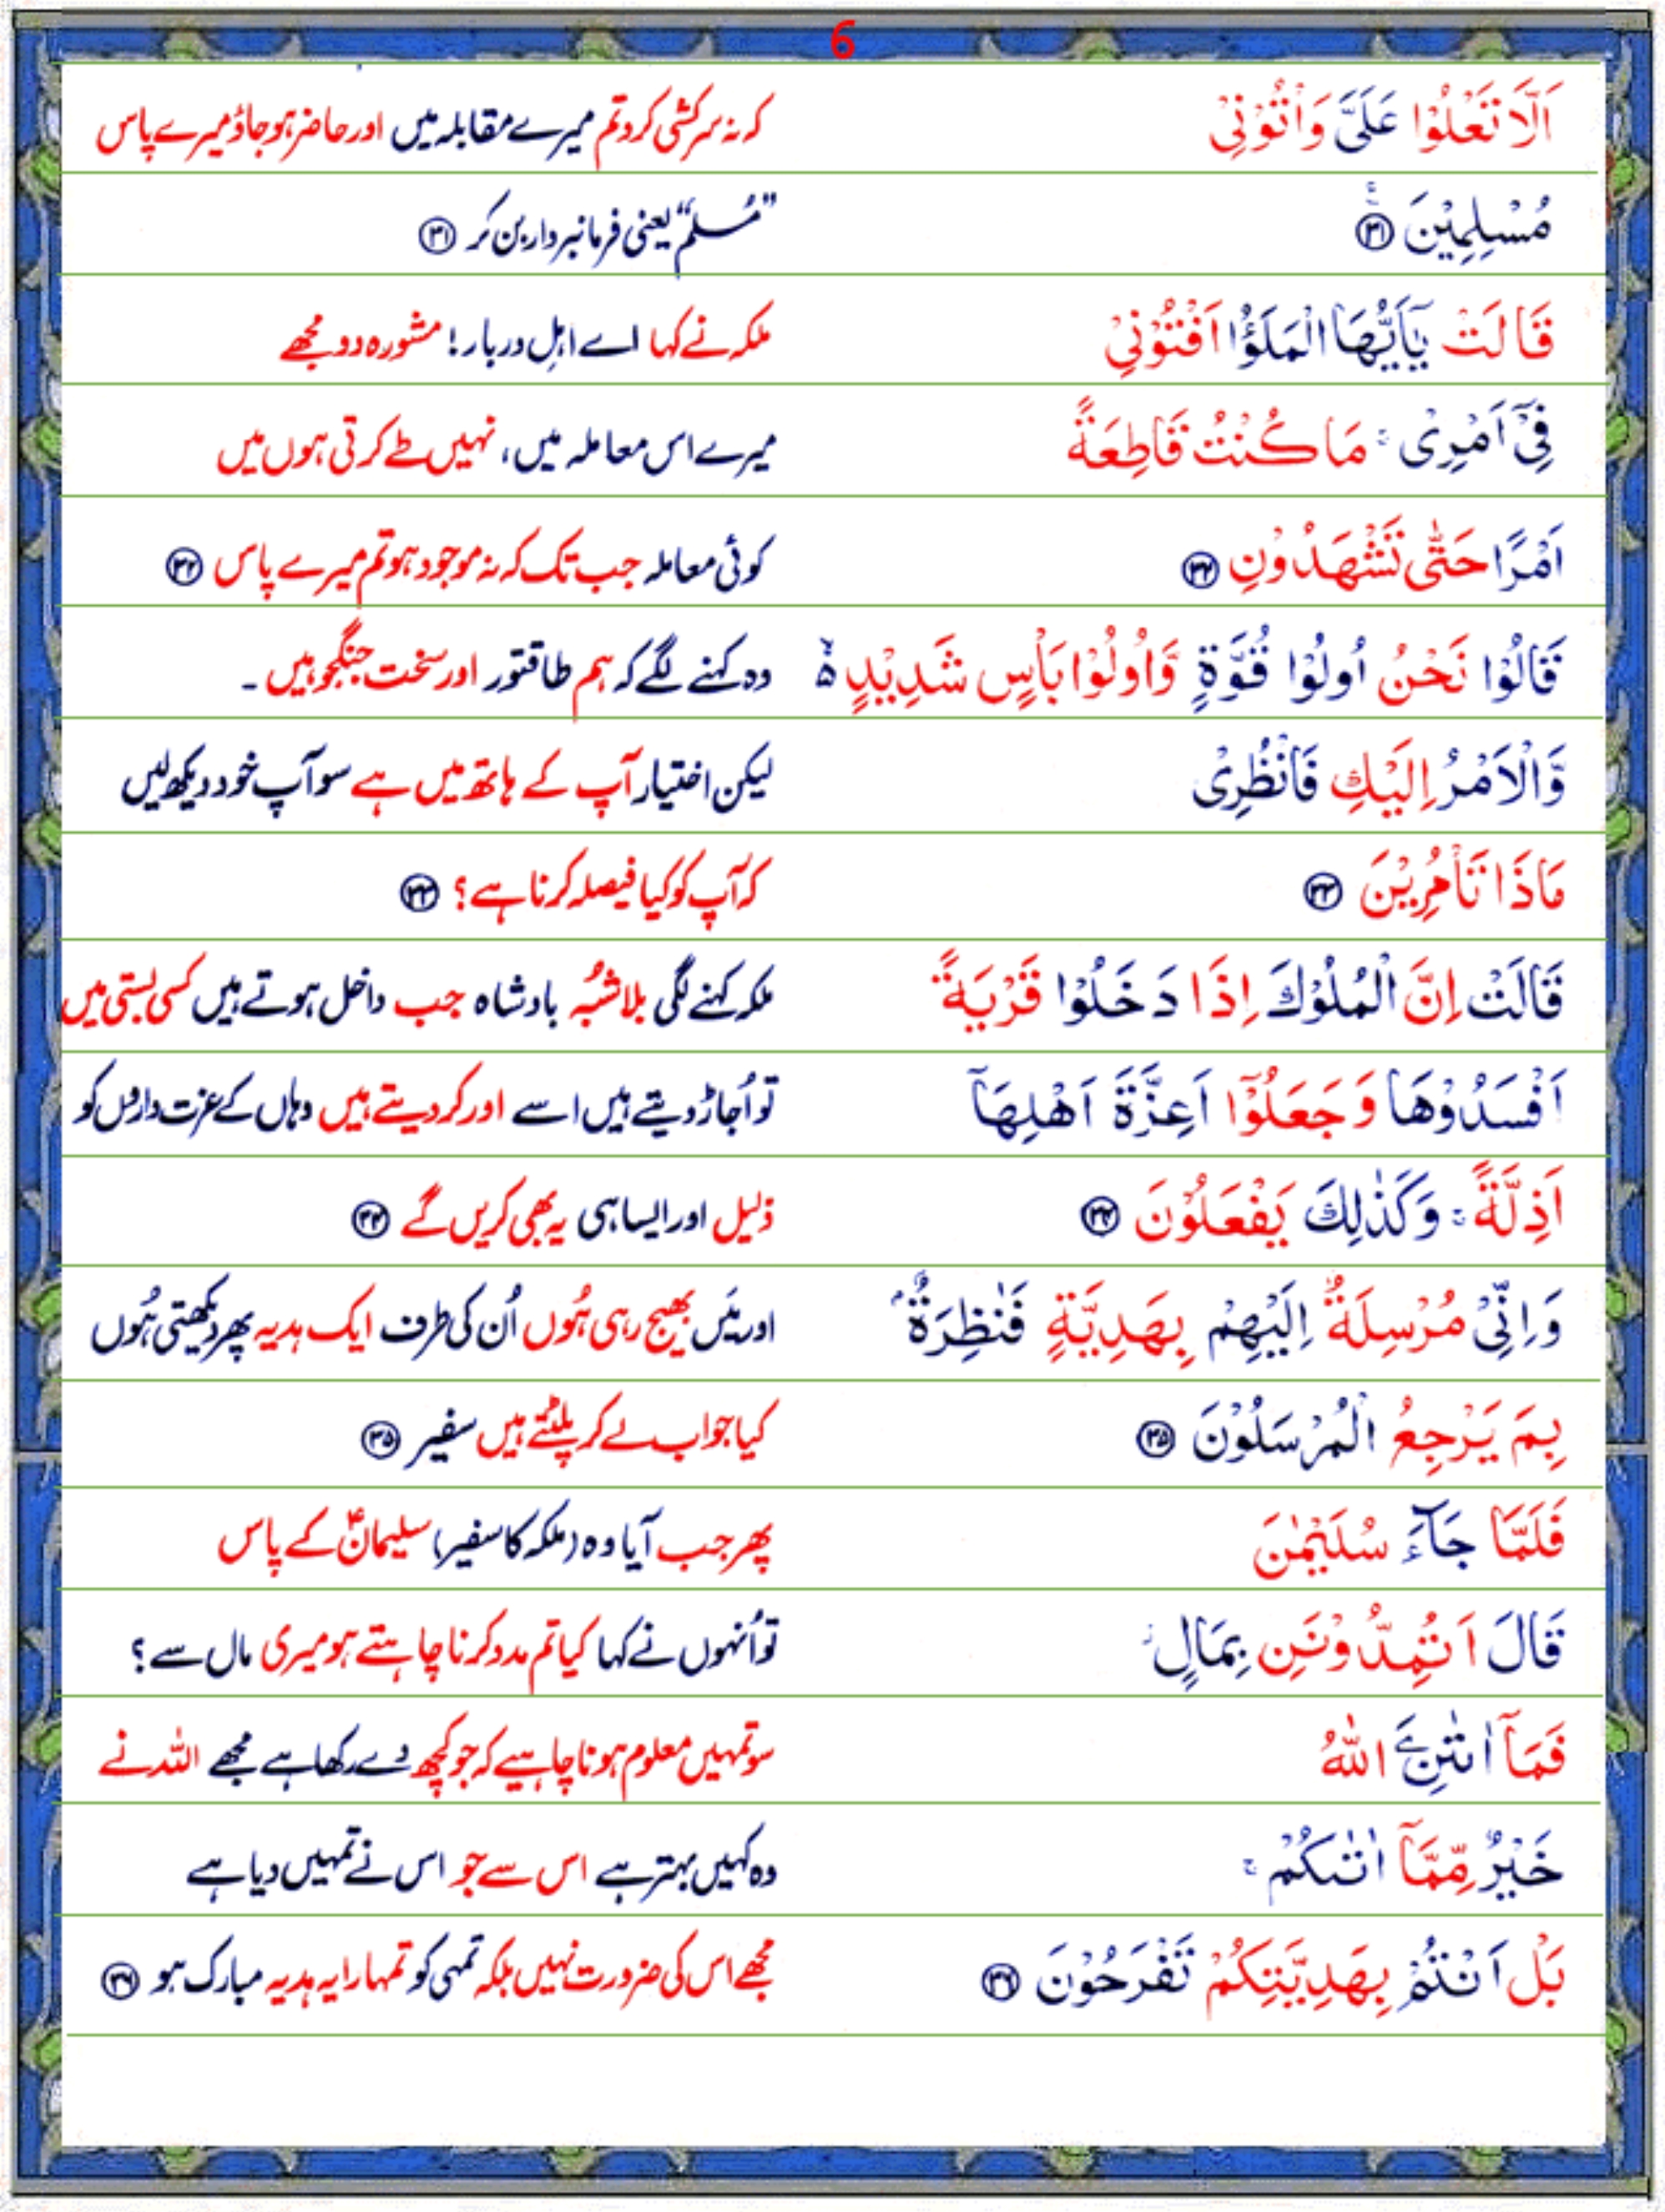 6
اَلَّا تَعْلُوْا عَلَيَّ وَاْتُوْنِيْ کہ نہ سرکشی کرو تم میرے مقابلہ میں اور حاضر ہو جاؤ میرے پاس
مُسْلِمِيْنَ ۟۠ ﴿۳۱﴾ ”مُسلم“ یعنی فرمانبردار بن کر ﴿۳۱﴾
قَالَتْ يٰٓاَيُّهَا الْمَلَؤُا اَفْتُوْنِيْ ملکہ نے کہا اے اہلِ دربار! مشورہ دو مجھے
فِيْٓ اَمْرِيْ ۚ مَا كُنْتُ قَاطِعَةً میرے اس معاملہ میں، نہیں طے کرتی ہوں میں
اَمْرًا حَتّٰى تَشْهَدُوْنِ ﴿۳۲﴾ کوئی معاملہ جب تک کہ نہ موجود ہو تم میرے پاس ﴿۳۲﴾
قَالُوْا نَحْنُ اُولُوْا قُوَّةٍ وَّاُولُوْا بَاْسٍ شَدِيْدٍ ۙ۬ وہ کہنے لگے کہ ہم طاقتور اور سخت جنگجو ہیں ۔
وَّالْاَمْرُ اِلَيْكِ فَانْظُرِيْ لیکن اختیار آپ کے ہاتھ میں ہے سو آپ خود دیکھ لیں
مَاذَا تَاْمُرِيْنَ ﴿۳۳﴾ کہ آپ کو کیا فیصلہ کرنا ہے؟ ﴿۳۳﴾
قَالَتْ اِنَّ الْمُلُوْكَ اِذَا دَخَلُوْا قَرْيَةً ملکہ کہنے لگی بلاشُبہ بادشاہ جب داخل ہوتے ہیں کسی بستی میں
اَفْسَدُوْهَا وَجَعَلُوْٓا اَعِزَّةَ اَهْلِهَآ تو اُجاڑ دیتے ہیں اسے اور کر دیتے ہیں وہاں کے عزت داروں کو
اَذِلَّةً ۚ وَكَذٰلِكَ يَفْعَلُوْنَ ﴿۳۴﴾ ذلیل اور ایسا ہی یہ بھی کریں گے ﴿۳۴﴾
وَاِنِّيْ مُرْسِلَةٌ اِلَيْهِمْ بِهَدِيَّةٍ فَنٰظِرَةٌۢ اور میَں بھیج رہی ہُوں اُن کی طرف ایک ہدیہ پھر دیکھتی ہُوں
بِمَ يَرْجِعُ الْمُرْسَلُوْنَ ﴿۳۵﴾ کیا جواب لے کر پلٹتے ہیں سفیر ﴿۳۵﴾
فَلَمَّا جَآءَ سُلَيْمٰنَ پھر جب آیا وہ (ملکہ کا سفیر) سلیمانؑ کے پاس
قَالَ اَتُمِدُّوْنَنِ بِمَالٍ ۡ تو اُنہوں نے کہا کیا تم مدد کرنا چاہتے ہو میری مال سے؟
فَمَآ اٰتٰىنِۦَ اللّٰهُ سو تمہیں معلوم ہونا چاہیے کہ جو کچھ دے رکھا ہے مجھے اللہ نے
خَيْرٌ مِّمَّآ اٰتٰىكُمْ ۚ وہ کہیں بہتر ہے اس سے جو اس نے تمہیں دیا ہے
بَلْ اَنْتُمْ بِهَدِيَّتِكُمْ تَفْرَحُوْنَ ﴿۳۶﴾ مجھے اس کی ضرورت نہیں بلکہ تمہی کو تمہارا یہ ہدیہ مبارک ہو ﴿۳۶﴾